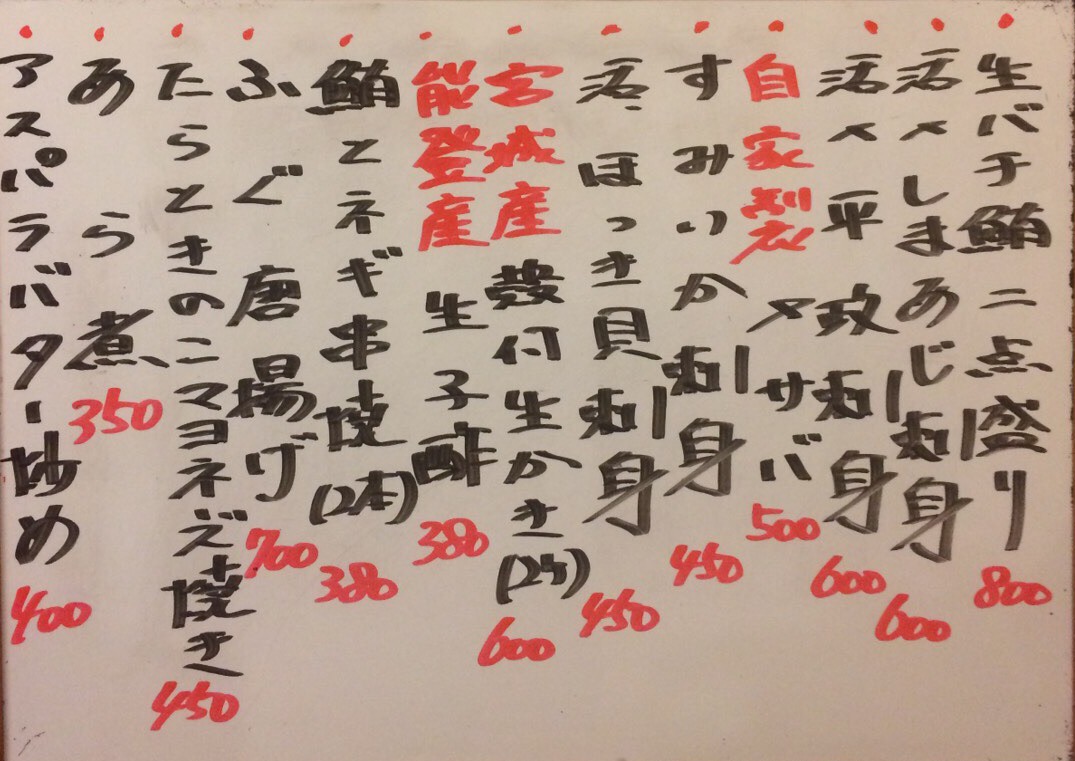 生バチ鮪二点盛り 800
活〆しまあじ刺身 600
活〆平政刺身 600
自家製〆サバ 500
すみいか刺身 450
活ほっき貝刺身 450
宮城産殻付生かき(2ケ) 600
能登産生子酢 380
鮪とネギ串焼(2本) 380
ふぐ唐揚げ 700
たらときのこマヨネーズ焼き 450
あら煮 350
アスパラバター炒め 400